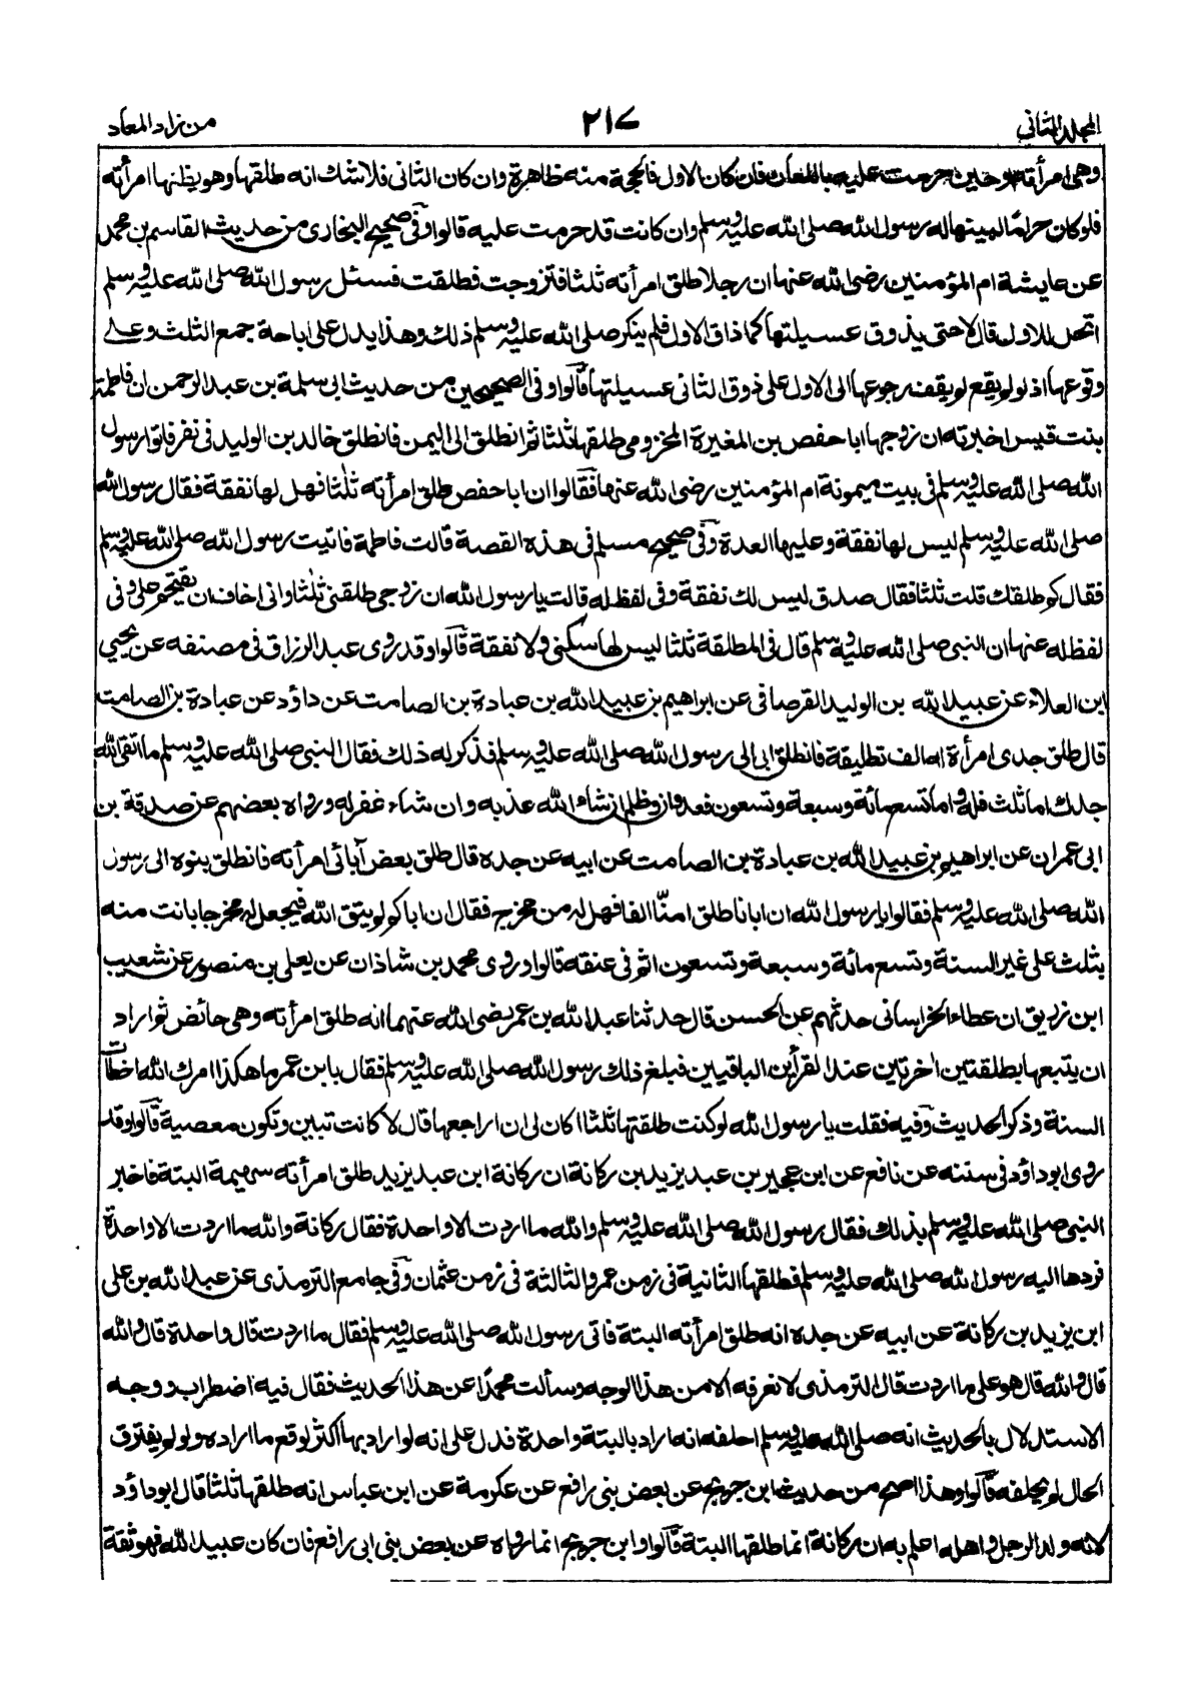 المجلد الثاني
٢١٧
من زاد المعاد
وهى امرأته او حين حرمت عليه باللعان فان كان الاول فالحجة منه ظاهرة وان كان الثانى فلاشك انه طلقها وهو يظنها امرأته
فلوكان حرامًا لمبينها له رسول الله صلى الله عليه وسلم وان كانت قد حرمت عليه قالوا وفى صحيح البخارى من حديث القاسم بن محمد
عن عايشة ام المؤمنين رضى الله عنها ان رجلا طلق امرأته ثلثا فتزوجت فطلقت فسئل رسول الله صلى الله عليه وسلم
اتحل للاول قال لا حتى يذوق عسيلتها كما ذاق الاول فلم ينكر صلى الله عليه وسلم ذلك وهذا يدل على اباحة جمع الثلث وعلى
وقوعها اذ لو لم يقع لم يقف رجوعها الى الاول على ذوق الثانى عسيلتها قالوا وفى الصحيحين من حديث ابى سلمة بن عبد الرحمن ان فاطمة
بنت قيس اخبرته ان زوجها ابا حفص بن المغيرة المخزومى طلقها ثلثا ثم انطلق الى اليمن فانطلق خالد بن الوليد فى نفر فاتوا رسول
الله صلى الله عليه وسلم فى بيت ميمونة ام المؤمنين رضى الله عنها فقالوا ان ابا حفص طلق امرأته ثلثا فهل لها نفقة فقال رسول الله
صلى الله عليه وسلم ليس لها نفقة وعليها العدة وفى صحيح مسلم فى هذه القصة قالت فاطمة فاتيت رسول الله صلى الله عليه وسلم
فقال كم طلقك قلت ثلثا فقال صدق ليس لك نفقة وفى لفظ له قالت يا رسول الله ان زوجى طلقنى ثلثا وانى اخاف ان يقتحم على وفى
لفظ له عنها ان النبى صلى الله عليه وسلم قال فى المطلقة ثلثا ليس لها سكنى ولا نفقة قالوا وقد روى عبد الرزاق فى مصنفه عن يحيى
ابن العلاء عن عبيد الله بن الوليد القرصافى عن ابراهيم بن عبيد الله بن عبادة بن الصامت عن داؤد عن عبادة بن الصامت
قال طلق جدى امرأة له الف تطليقة فانطلق ابى الى رسول الله صلى الله عليه وسلم فذكر له ذلك فقال النبى صلى الله عليه وسلم ما اتقى الله
جدك اما ثلث فله واما تسعمائة وسبعة وتسعون فعدوان وظلم ان شاء الله عذبه وان شاء غفر له ورواه بعضهم عن صدقة بن
ابى عمران عن ابراهيم بن عبيد الله بن عبادة بن الصامت عن ابيه عن جده قال طلق بعض آبائى امرأته فانطلق بنوه الى رسول
الله صلى الله عليه وسلم فقالوا يا رسول الله ان ابانا طلق امنّا الفا فهل له من مخرج فقال ان اباكم لم يتق الله فيجعل له مخرجا بانت منه
بثلث على غير السنة وتسع مائة وسبعة وتسعون اثم فى عنقه قالوا وروى محمد بن شاذان عن يعلى بن منصور عن شعيب
ابن زريق ان عطاء الخراسانى حدثهم عن الحسن قال حدثنا عبد الله بن عمر رضى الله عنهما انه طلق امرأته وهى حائض ثم اراد
ان يتبعها بطلقتين اخرتين عند القرأين الباقيين فبلغ ذلك رسول الله صلى الله عليه وسلم فقال يا بن عمر ما هكذا امرك الله اخطأت
السنة وذكر الحديث وفيه فقلت يا رسول الله لو كنت طلقتها ثلثا اكان لى ان اراجعها قال لا كانت تبين وتكون معصية قالوا وقد
روى ابو داؤد فى سننه عن نافع عن ابن عجير بن عبد يزيد بن ركانة ان ركانة ابن عبد يزيد طلق امرأته سهيمة البتة فاخبر
النبى صلى الله عليه وسلم بذلك فقال رسول الله صلى الله عليه وسلم والله ما اردت الا واحدة فقال ركانة والله ما اردت الا واحدة
فردها اليه رسول الله صلى الله عليه وسلم فطلقها الثانية فى زمن عمر والثالثة فى زمن عثمان وفى جامع الترمذى عن عبد الله بن على
ابن يزيد بن ركانة عن ابيه عن جده انه طلق امرأته البتة فاتى رسول الله صلى الله عليه وسلم فقال ما اردت قال واحدة قال والله
قال والله قال هو على ما اردت قال الترمذى لا نعرفه الا من هذا الوجه وسألت محمدًا عن هذا الحديث فقال فيه اضطراب ووجه
الاستدلال بالحديث انه صلى الله عليه وسلم احلفه انه اراد بالبتة واحدة فدل على انه لو اراد بها اكثر لوقع ما اراده ولو لم يفترق
الحال لم يحلفه قالوا وهذا اصح من حديث ابن جريج عن بعض بنى رافع عن عكرمة عن ابن عباس انه طلقها ثلثا قال ابو داؤد
لانه ولد الرجل واهله اعلم به ان ركانة انما طلقها البتة قالوا وابن جريج انما رواه عن بعض بنى ابى رافع فان كان عبيد الله فهو ثقة